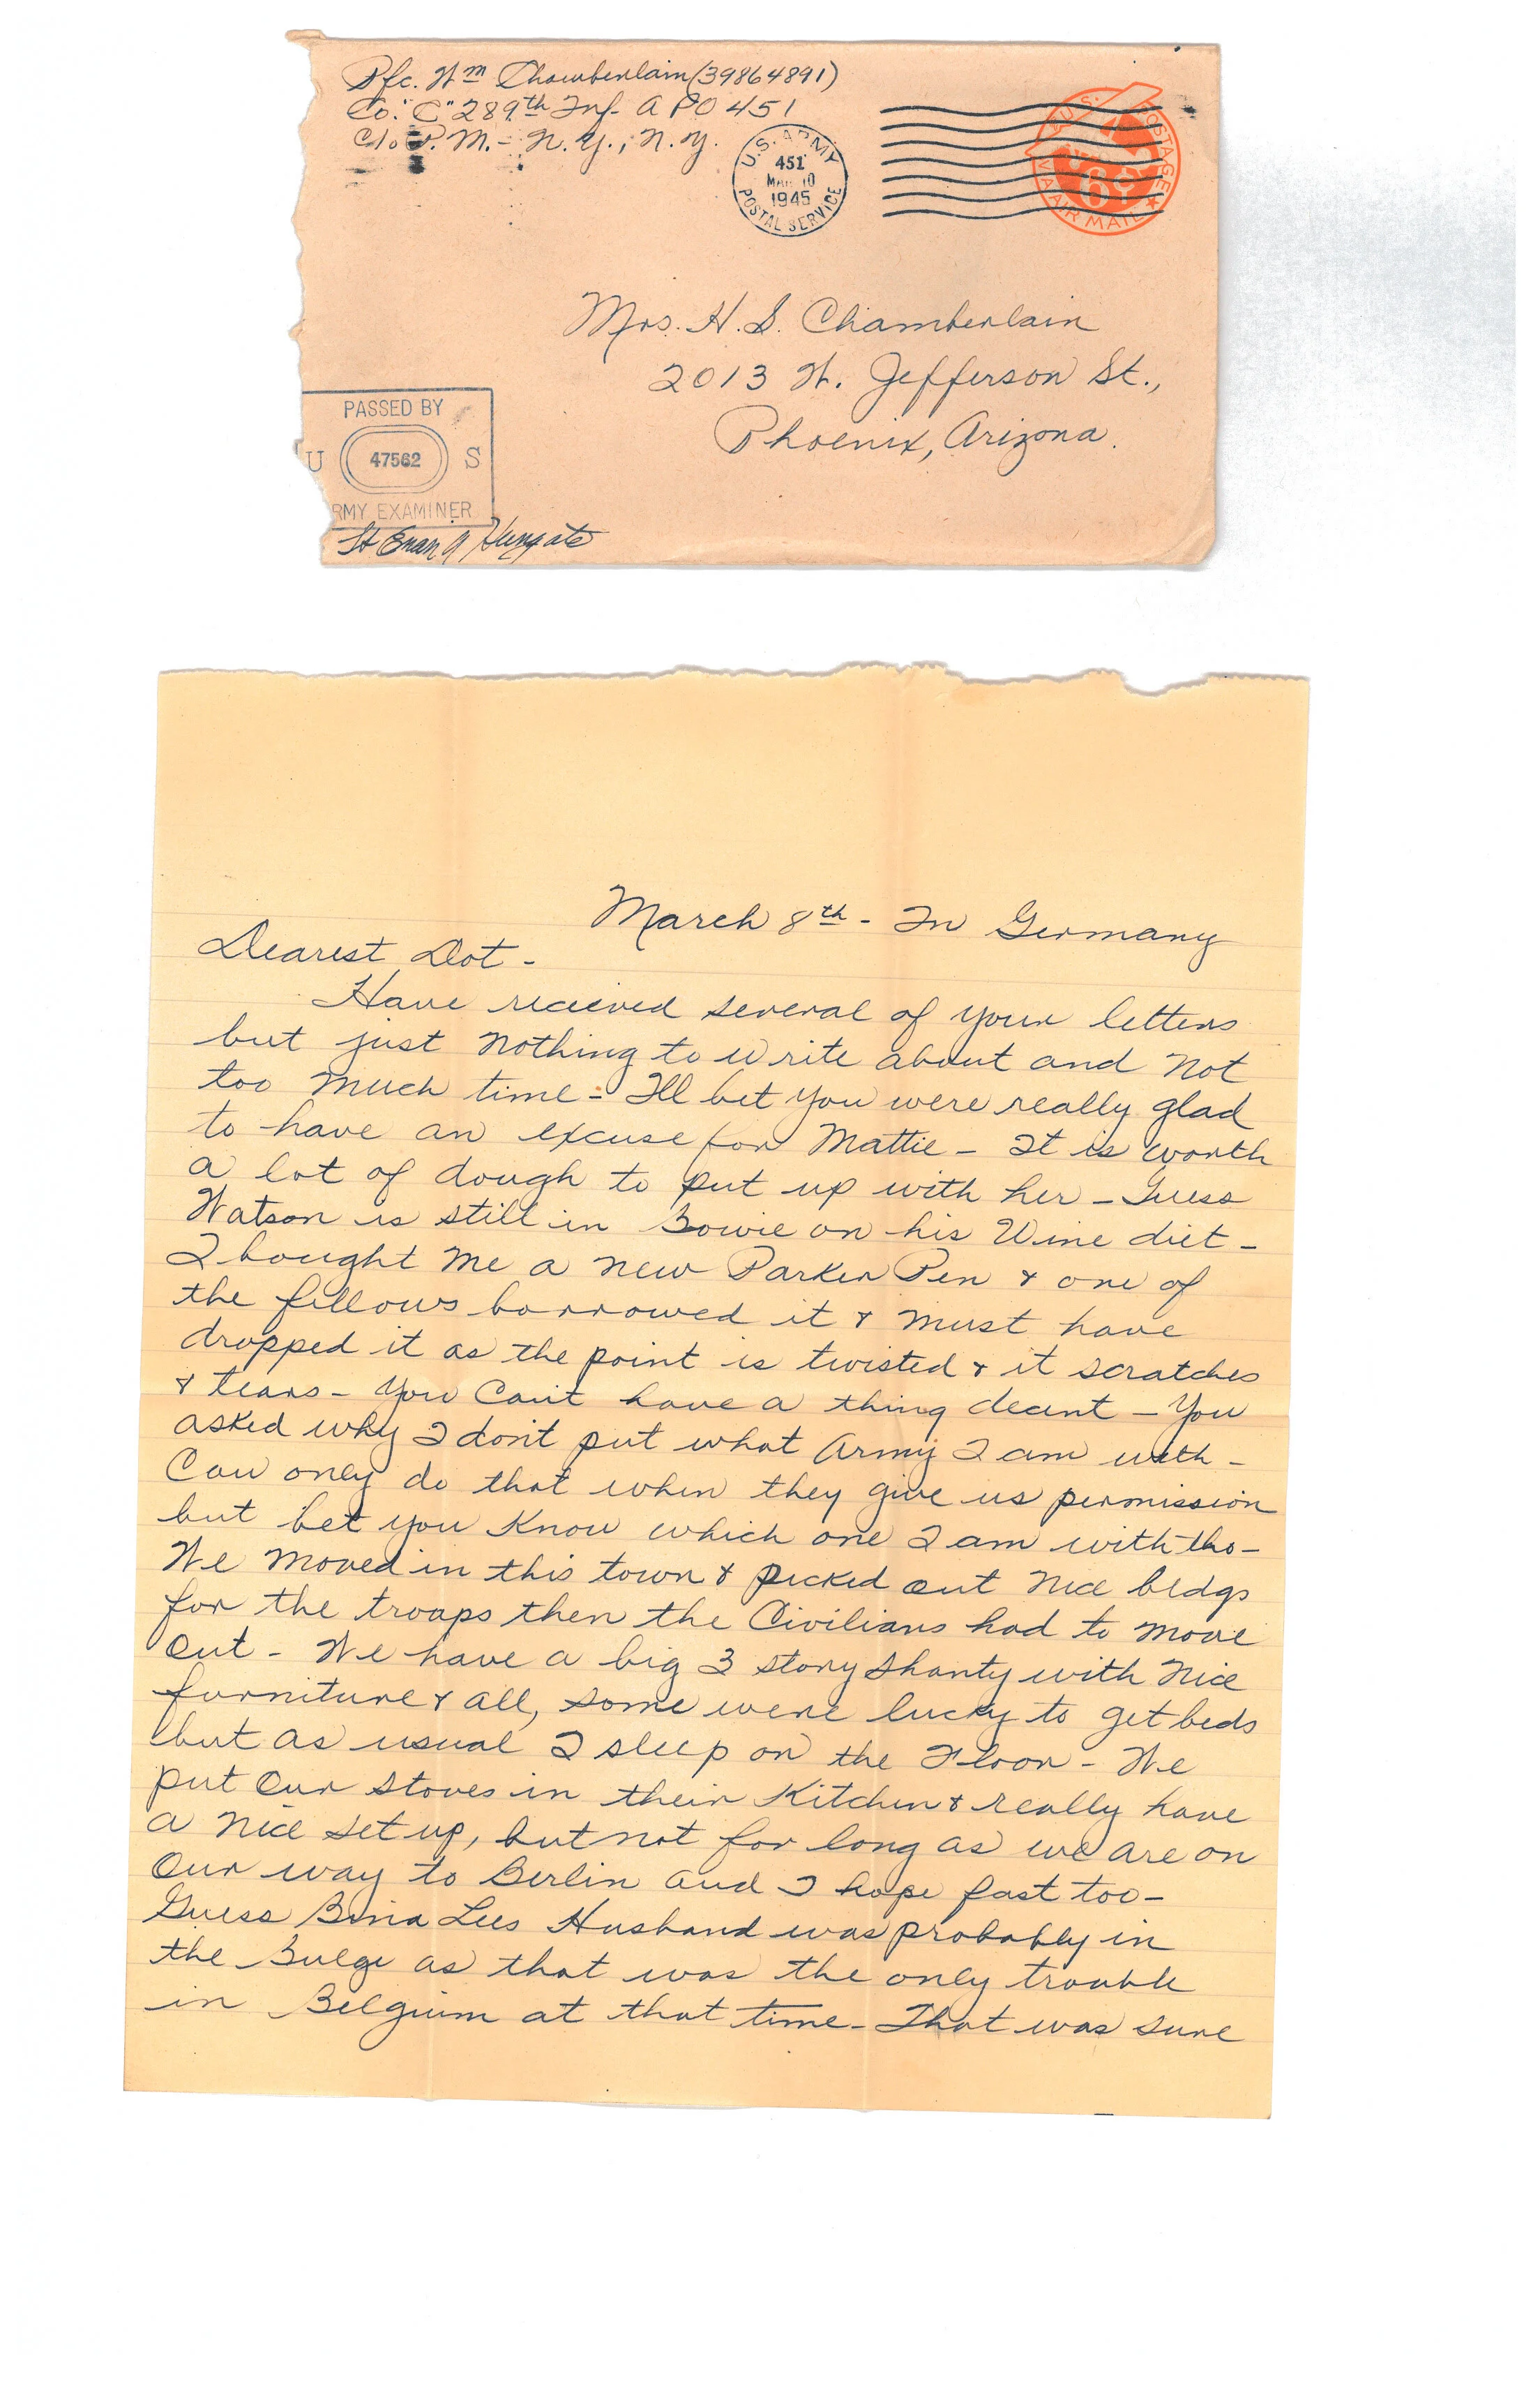 Pfc. Wm Chamberlain (39864891)
Co. "C" 289th Inf- APO 451
c/o P. M. - N. Y., N. Y.
U.S. ARMY
451
MAR 10
1945
POSTAL SERVICE
U.S. POSTAGE
6¢
VIA AIR MAIL
Mrs. H. S. Chamberlain
2013 W. Jefferson St.,
Phoenix, Arizona.
PASSED BY
U 47562 S
RMY EXAMINER
Lt
March 8th - In Germany
Dearest Dot -
Have recieved several of your letters
but just nothing to write about and not
too much time - Ill bet you were really glad
to have an excuse for Mattie - It is worth
a lot of dough to put up with her - Guess
Watson is still in Bowie on his Wine diet -
I bought me a new Parker Pen & one of
the fellows borrowed it & must have
dropped it as the point is twisted & it scratches
& tears - You Can't have a thing decent - You
asked why I don't put what Army I am with -
Can only do that when they give us permission
but bet you Know which one I am with tho -
We moved in this town & picked out nice bldgs
for the troops then the Civilians had to move
out - We have a big 3 story shanty with nice
furniture & all, some were lucky to get beds
but as usual I sleep on the Floor - We
put our stoves in their Kitchen & really have
a nice set up, but not for long as we are on
our way to Berlin and I hope fast too -
Guess Lees Husband was probably in
the Bulge as that was the only trouble
in Belgium at that time - That was sure